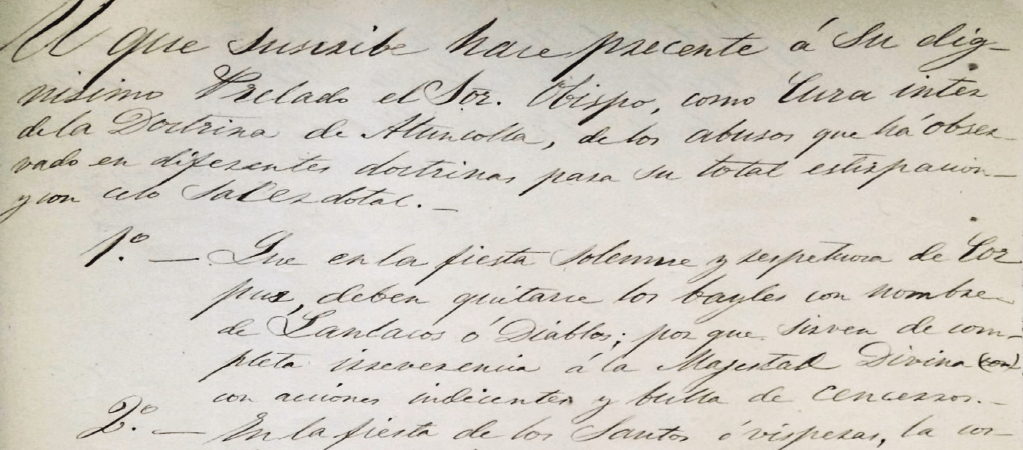 El que suscribe hace precente á Su dig-
nisimo Prelado el Sor. Obispo, como Cura inter
de la Doctrina de Atuncolla, de los abusos que há obser-
vado en diferentes doctrinas para su total estirpacion
y con celo Sacerdotal.—
1.º — Que en la fiesta solemne y respetuosa de Cor
pus, deben quitarse los bayles con nombre
de Lanlacos ó Diablos; por que sirven de com-
pleta irreverencia á la Magestad Divina (con)
con acciones indicentes y bulla de cencerros.—
2.º — En la fiesta de los Santos ó visperas, la cor-